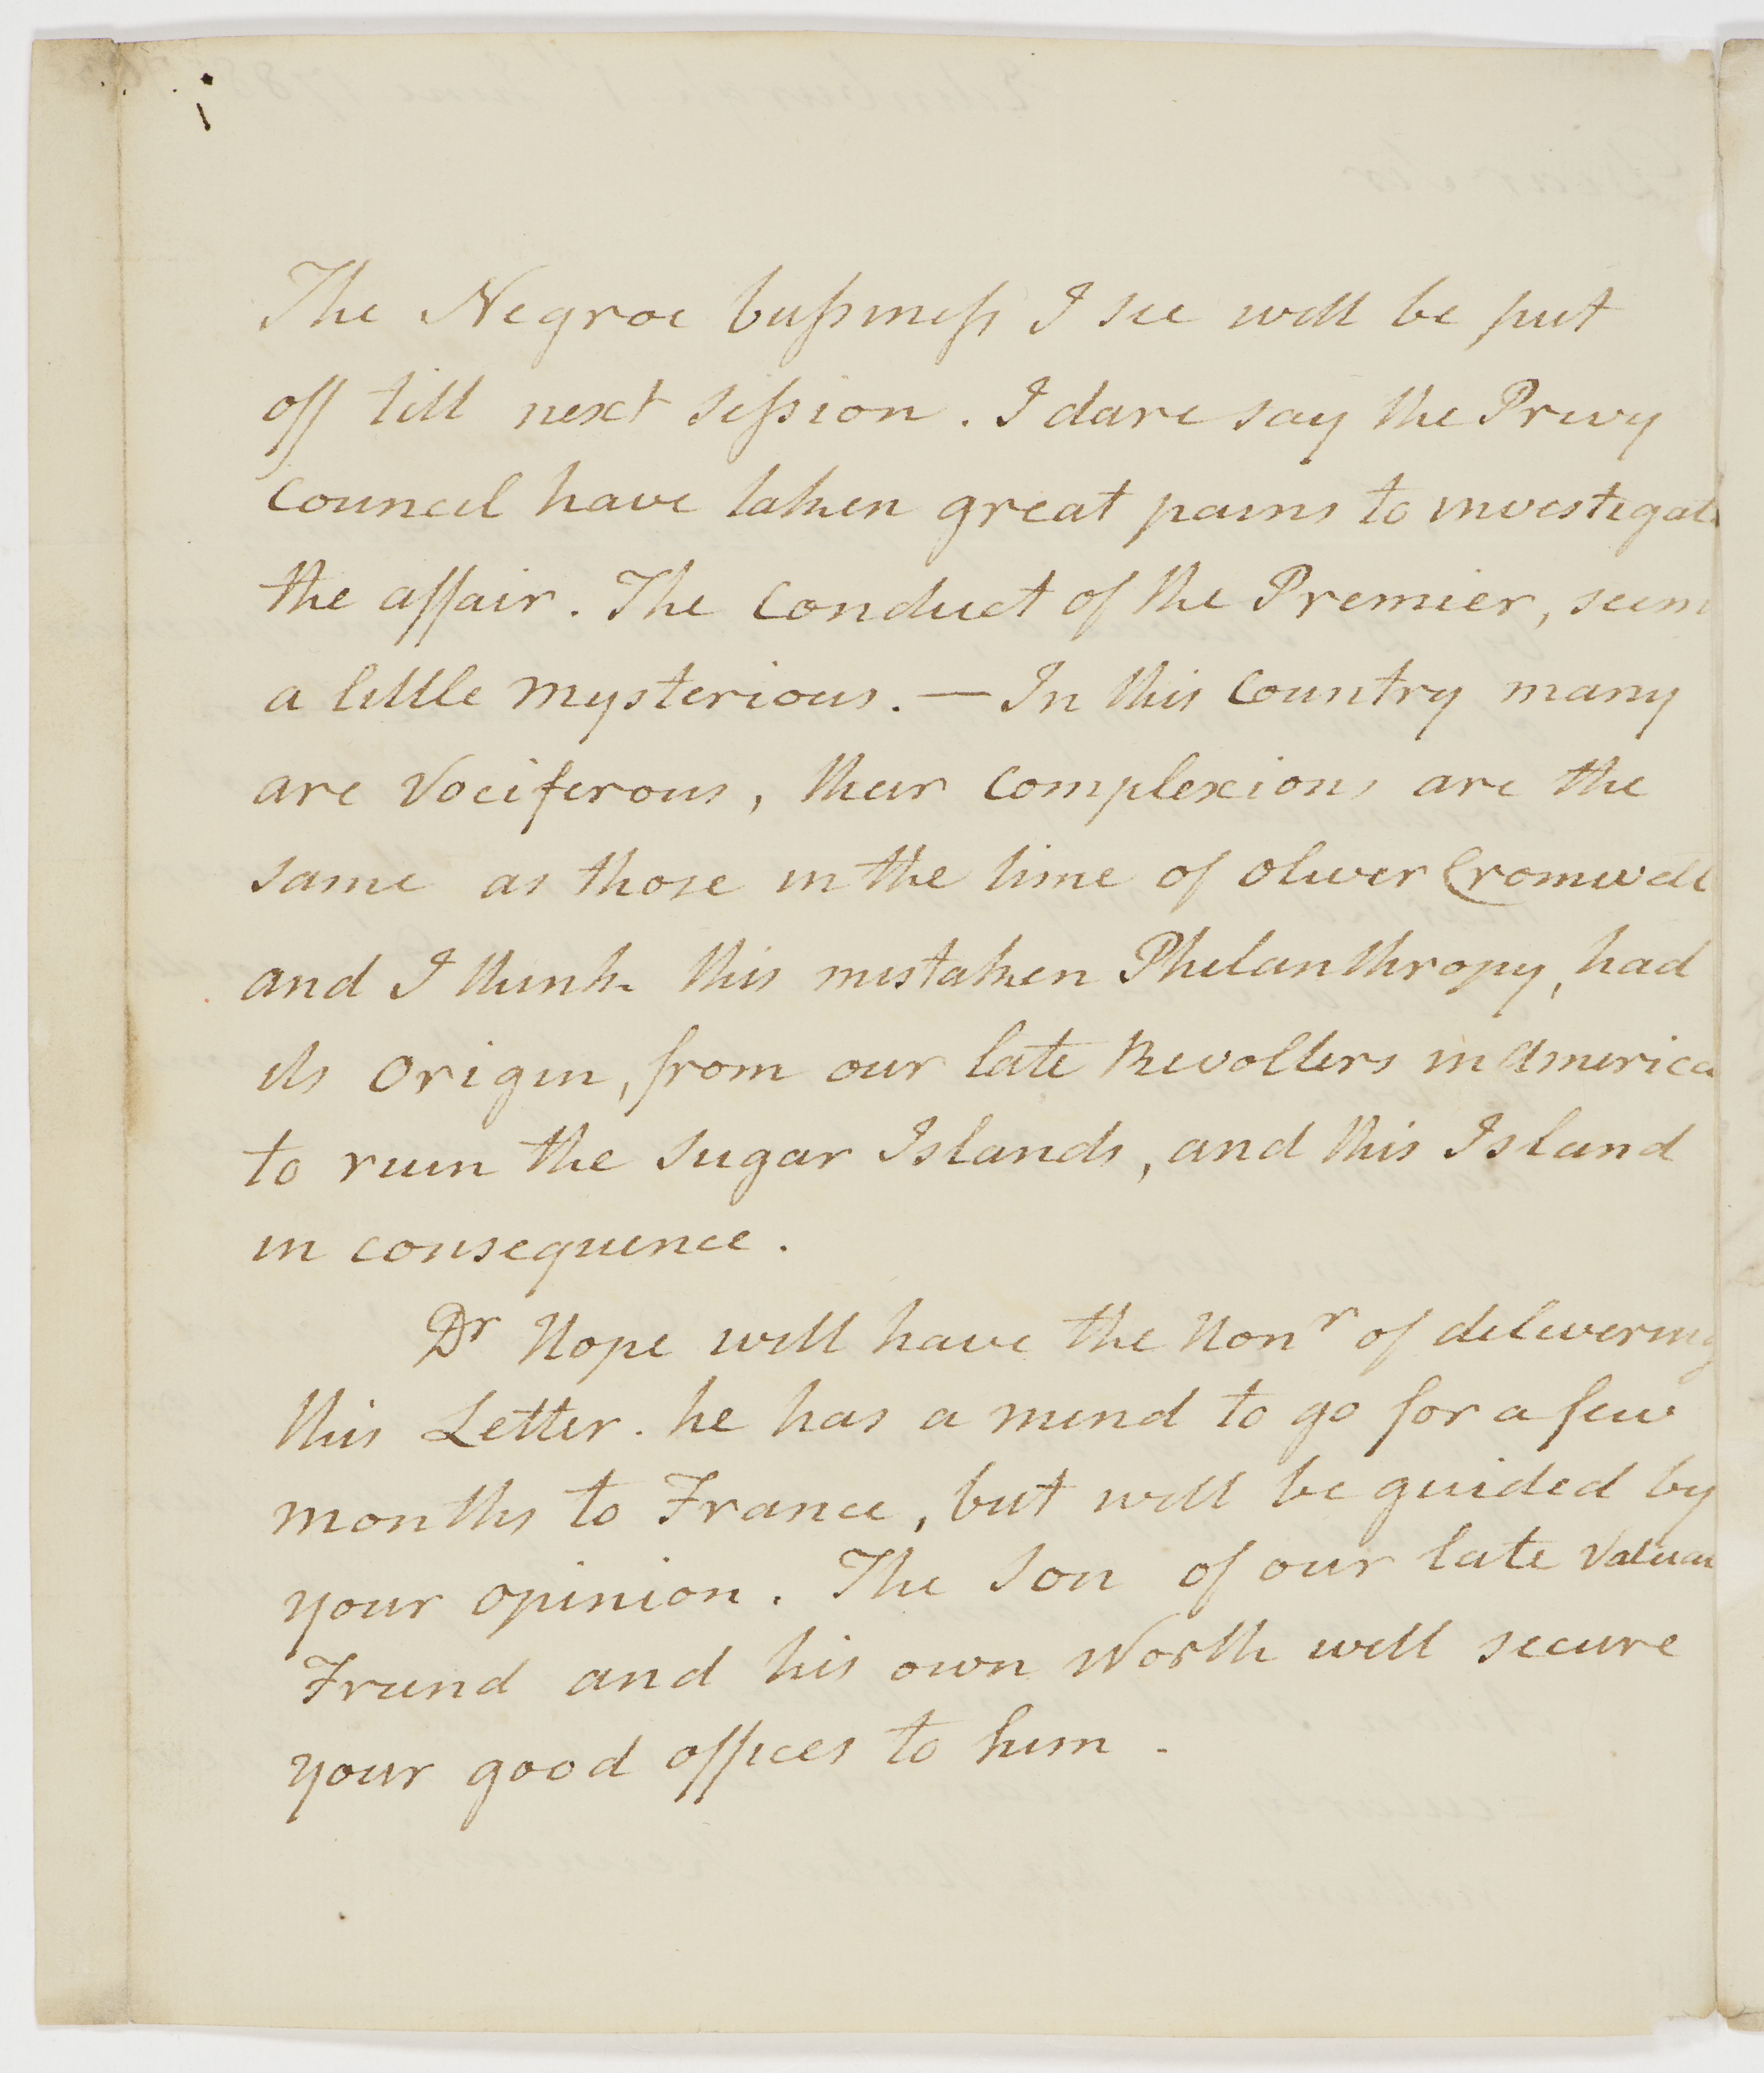 The Negroe bussiness I see will be put
off till next session. I dare say the Privy
Council have taken great pains to investigate
the affair. The Conduct of the Premier, seem
a little mysterious. — In this Country many
are Vociferous, their Complexions are the
same as those in the time of Oliver Cromwell
and I think this mistaken Philanthropy, had
its Origin, from our late Revolters in America
to ruin the Sugar Islands, and this Island
in consequence.
Dr Hope will have the Honr of delivering
this Letter. he has a mind to go for a few
months to France, but will be guided by
your opinion. The Son of our late
Friend and his own Worth will secure
your good offices to him.